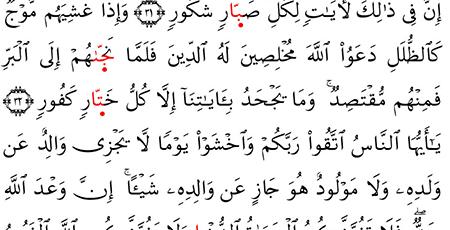 إِنَّ فِى ذَٰلِكَ لَأَيَـٰتٍۢ لِّكُلِّ صَبَّارٍۢ شَكُورٍۢ ۝٣١ وَإِذَا غَشِيَهُم مَّوْجٌۭ
كَٱلظُّلَلِ دَعَوُا۟ ٱللَّهَ مُخْلِصِينَ لَهُ ٱلدِّينَ فَلَمَّا نَجَّىٰهُمْ إِلَى ٱلْبَرِّ
فَمِنْهُم مُّقْتَصِدٌۭ ۚ وَمَا يَجْحَدُ بِـَٔايَـٰتِنَآ إِلَّا كُلُّ خَتَّارٍۢ كَفُورٍۢ ۝٣٢
يَـٰٓأَيُّهَا ٱلنَّاسُ ٱتَّقُوا۟ رَبَّكُمْ وَٱخْشَوْا۟ يَوْمًۭا لَّا يَجْزِى وَالِدٌ عَن
وَلَدِهِۦ وَلَا مَوْلُودٌ هُوَ جَازٍ عَن وَالِدِهِۦ شَيْـًٔا ۚ إِنَّ وَعْدَ ٱللَّهِ